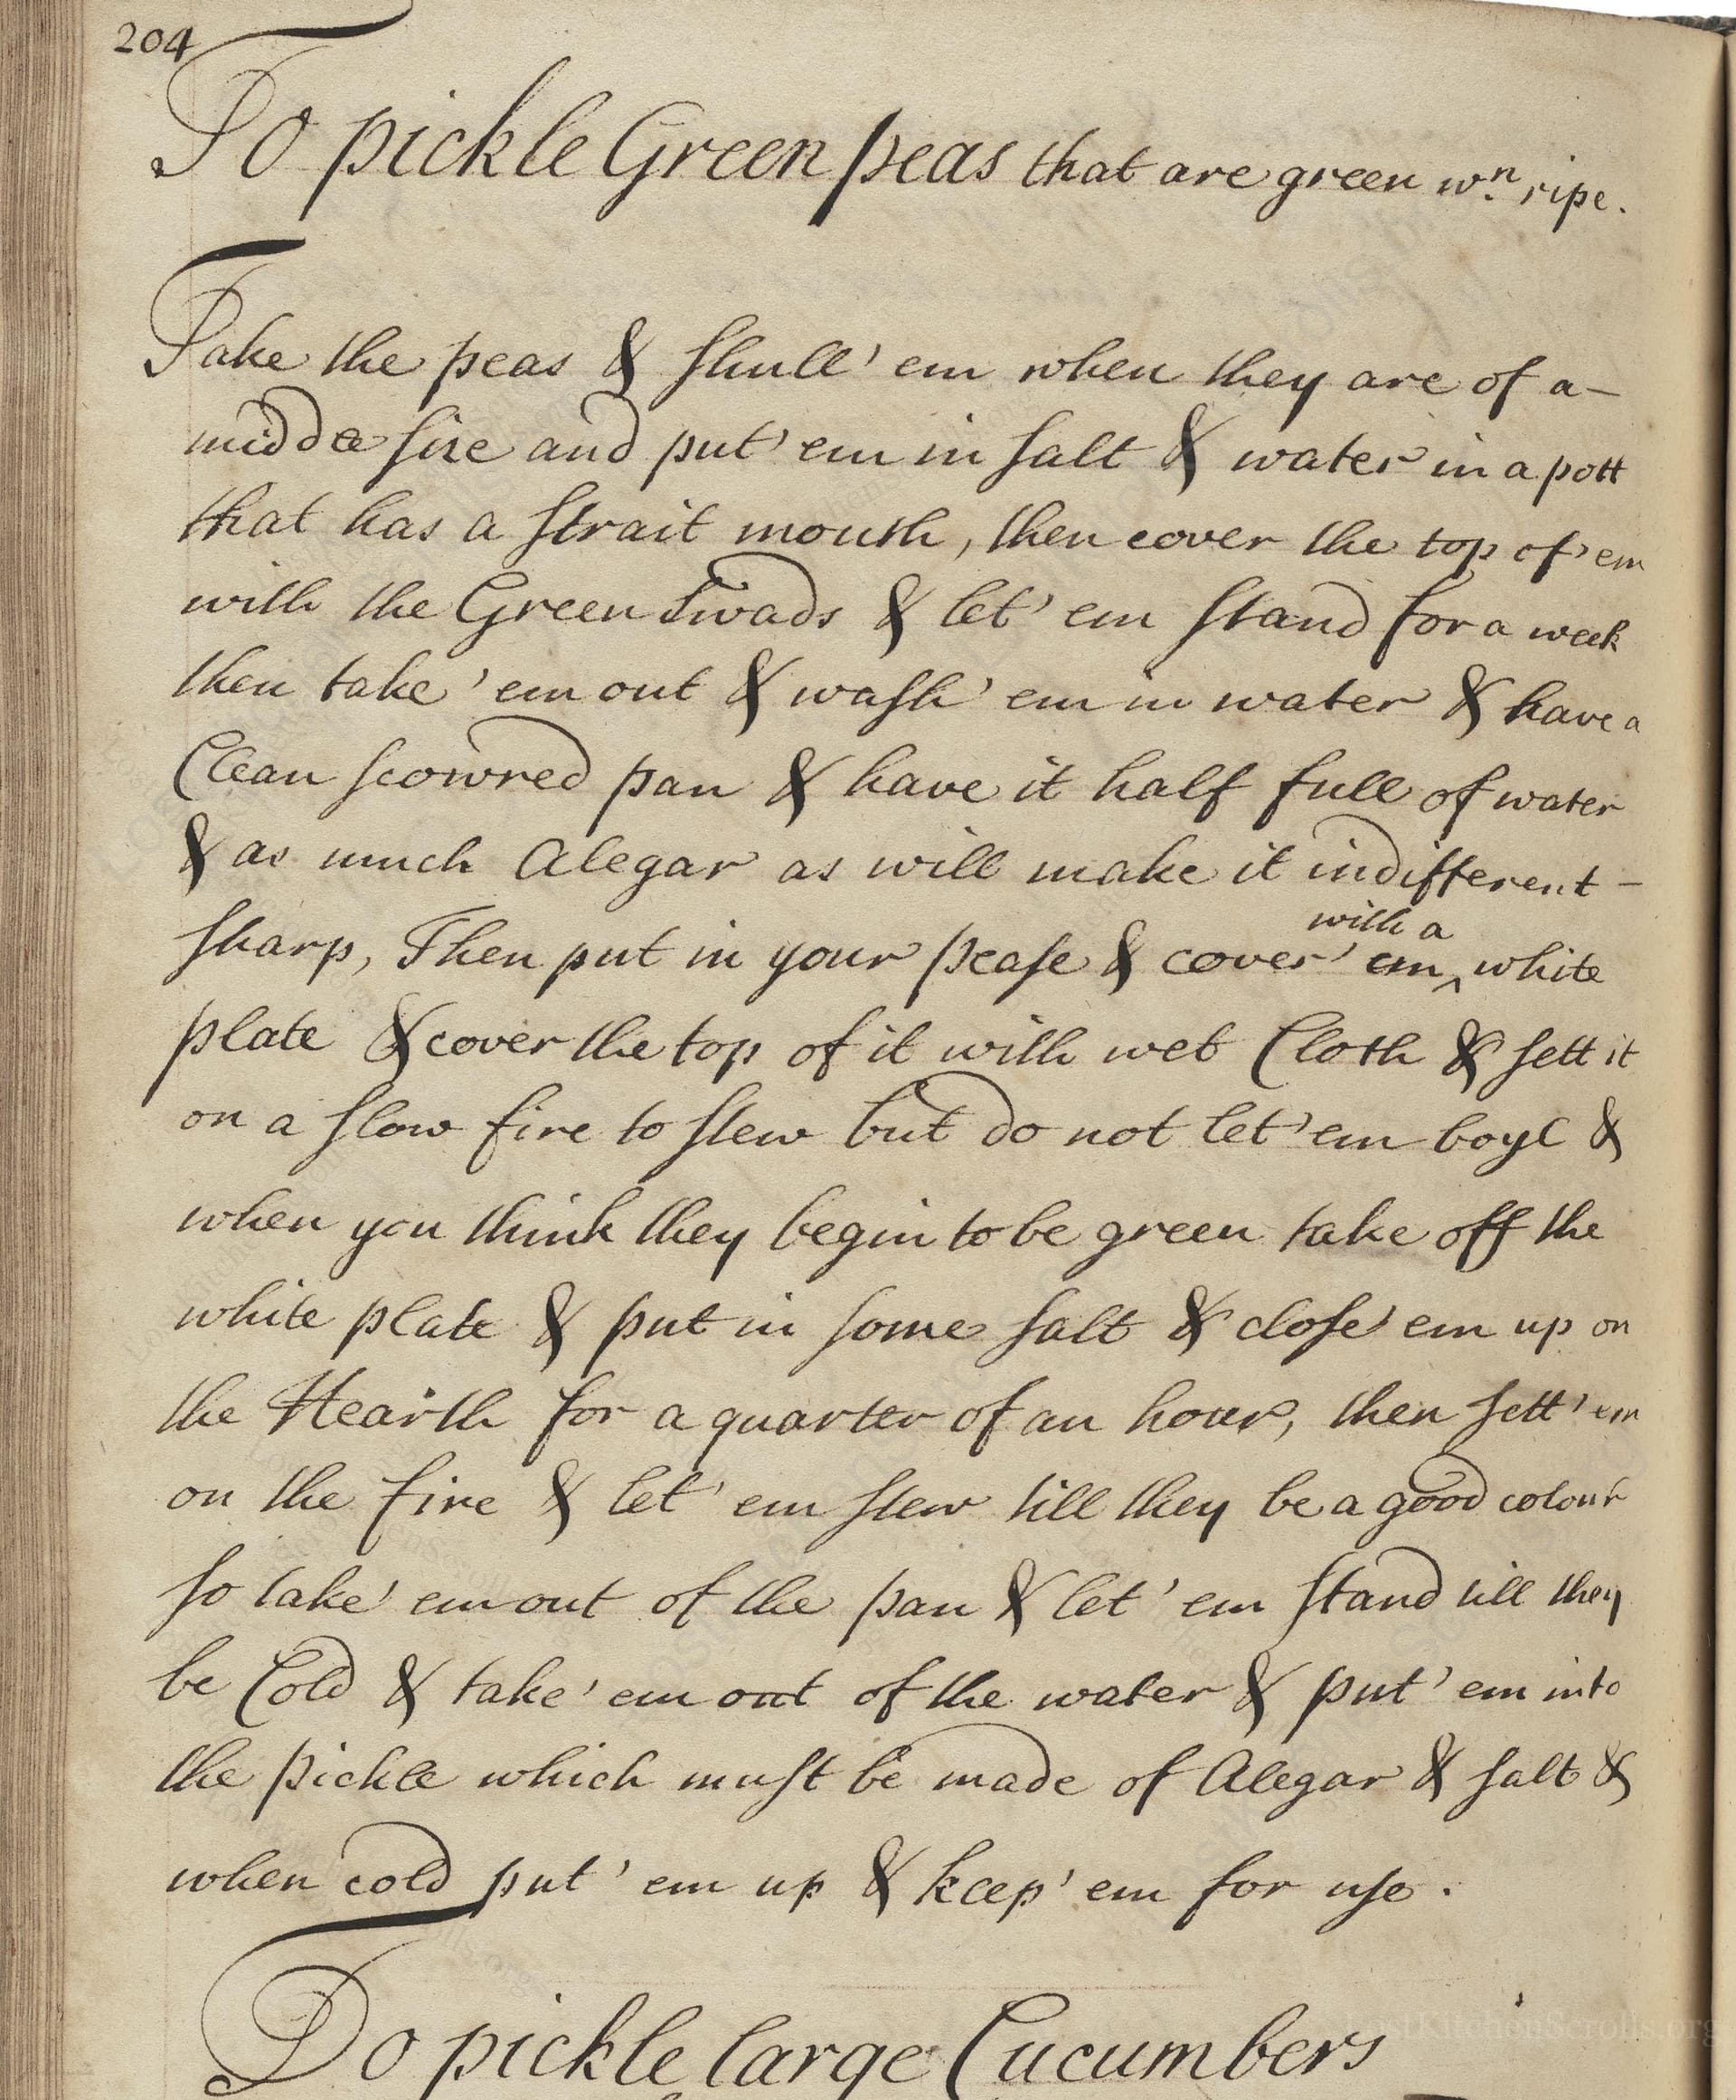 204
To pickle Green peas that are green wn. ripe.
Take the peas & shull 'em when they are of a -
middle size and put 'em in salt & water in a pott
that has a strait mouth, then cover the top of 'em
with the Green Swads & let 'em stand for a week
then take 'em out & wash 'em in water & have a
Clean scowred pan & have it half full of water
& as much Alegar as will make it indifferent -
with a
sharp, Then put in your pease & cover 'em ‸ white
plate & cover the top of it with wet Cloth & sett it
on a slow fire to stew but do not let 'em boyl &
when you think they begin to be green take off the
white plate & put in some salt & close 'em up on
the Hearth for a quarter of an hour, then sett 'em
on the fire & let 'em stew till they be a good colour
so take 'em out of the pan & let 'em stand till they
be Cold & take 'em out of the water & put 'em into
the pickle which must be made of Alegar & salt &
when cold put 'em up & keep 'em for use .
To pickle large Cucumbers